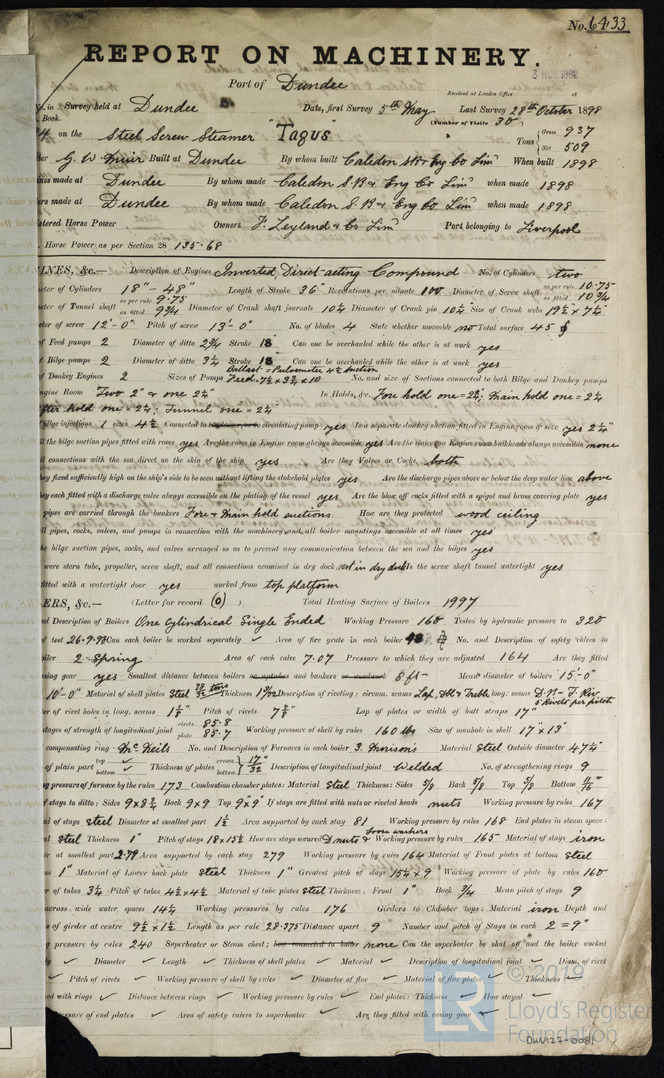 No. 6433
REPORT ON MACHINERY.
3 NOV 1898
Port of Dundee
Received at London Office
No. in Survey held at Dundee Date, first Survey 5th May Last Survey 28th October 1898
Book. (Number of Visits 30)
on the Steel Screw Steamer "Tagus" Tons Gross 937 Net 509
G. W. Muir Built at Dundee By whom built Caledon S.B & Eng Co Limd When built 1898
ines made at Dundee By whom made Caledon S.B & Eng Co Limd when made 1898
ers made at Dundee By whom made Caledon S.B & Eng Co Limd when made 1898
istered Horse Power Owners F. Leyland & Co Limd Port belonging to Liverpool
Horse Power as per Section 28 135.68
INES, &c.— Description of Engines Inverted Direct-acting Compound No. of Cylinders two
eter of Cylinders 18" - 48" Length of Stroke 36" Revolutions per minute 100 Diameter of Screw shaft as per rule 10.75 as fitted 10¾
eter of Tunnel shaft as per rule 9.75 as fitted 9¾ Diameter of Crank shaft journals 10¼ Diameter of Crank pin 10¼ Size of Crank webs 19½ × 7½"
eter of screw 12'-0" Pitch of screw 13'-0" No. of blades 4 State whether moveable no Total surface 45
of Feed pumps 2 Diameter of ditto 2¾ Stroke 18 Can one be overhauled while the other is at work yes
of Bilge pumps 2 Diameter of ditto 3¼ Stroke 18 Can one be overhauled while the other is at work yes
of Donkey Engines 2 Sizes of Pumps Ballast = Pulsometer 4½ suction Feed = 7½ × 3¾ × 10 No. and size of Suctions connected to both Bilge and Donkey pumps
ngine Room Two 2" & one 2¼" In Holds, &c. Fore hold one = 2¼; Main hold one = 2¼
After hold one = 2¼; Tunnel one = 2¼
bilge injections 1 sizes 4½ Connected to circulating pump yes Is a separate donkey suction fitted in Engine room & size yes 2¼"
ll the bilge suction pipes fitted with roses yes Are the roses in Engine room always accessible yes Are the sluices on Engine room bulkheads always accessible none
ll connections with the sea direct on the skin of the ship yes Are they Valves or Cocks both
hey fixed sufficiently high on the ship's side to be seen without lifting the stokehold plates yes Are the discharge pipes above or below the deep water line above
hey each fitted with a discharge valve always accessible on the plating of the vessel yes Are the blow off cocks fitted with a spigot and brass covering plate yes
pipes are carried through the bunkers Fore & Main hold suctions How are they protected wood ceiling
ll pipes, cocks, valves, and pumps in connection with the machinery and all boiler mountings accessible at all times yes
he bilge suction pipes, cocks, and valves arranged so as to prevent any communication between the sea and the bilges yes
were stern tube, propeller, screw shaft, and all connections examined in dry dock not in dry dock Is the screw shaft tunnel watertight yes
fitted with a watertight door yes worked from top platform
ERS, &c.— (Letter for record (O)) Total Heating Surface of Boilers 1997
nd Description of Boilers One Cylindrical Single Ended Working Pressure 160 Tested by hydraulic pressure to 320
of test 26.9.98 Can each boiler be worked separately ✓ Area of fire grate in each boiler 48 No. and Description of safety valves to
oiler 2 Spring Area of each valve 7.07 Pressure to which they are adjusted 164 Are they fitted
sing gear yes Smallest distance between boilers or uptakes and bunkers or woodwork 8 ft Mean diameter of boilers 15'-0"
10'-0" Material of shell plates Steel 28/32 tons Thickness 1 9/32 Description of riveting: circum. seams Lap, Dbl & Treble long. seams D.B.- T. Riv 5 Rivets per pitch
er of rivet holes in long. seams 1⅛" Pitch of rivets 7⅞" Lap of plates or width of butt straps 17"
tages of strength of longitudinal joint rivets 85.8 plate 85.7 Working pressure of shell by rules 160 lbs Size of manhole in shell 17" × 13"
compensating ring McNeils No. and Description of Furnaces in each boiler 3. Morisons Material steel Outside diameter 47¼"
of plain part top ✓ bottom ✓ Thickness of plates crown bottom 17"/32 Description of longitudinal joint Welded No. of strengthening rings 9
ng pressure of furnace by the rules 173 Combustion chamber plates: Material steel Thickness: Sides 5/8 Back 5/8 Top 5/8 Bottom 11"/16
f stays to ditto: Sides 9 × 8¾ Back 9×9 Top 9×9" If stays are fitted with nuts or riveted heads nuts Working pressure by rules 167
al of stays steel Diameter at smallest part 1½ Area supported by each stay 81 Working pressure by rules 168 End plates in steam space:
al steel Thickness 1" Pitch of stays 18 × 15½ How are stays secured D nuts & loose washers Working pressure by rules 165 Material of stays iron
er at smallest part 2.79 Area supported by each stay 279 Working pressure by rules 164 Material of Front plates at bottom steel
ss 1" Material of Lower back plate steel Thickness 1" Greatest pitch of stays 15½ × 9 Working pressure of plate by rules 160
er of tubes 3¼ Pitch of tubes 4½ × 4½ Material of tube plates steel Thickness: Front 1" Back ¾ Mean pitch of stays 9
across. wide water spaces 14¼ Working pressures by rules 176 Girders to Chamber tops: Material iron Depth and
ss of girder at centre 9½ × 1½ Length as per rule 28.375 Distance apart 9 Number and pitch of Stays in each 2 = 9"
g pressure by rules 240 Superheater or Steam chest; how connected to boiler none Can the superheater be shut off and the boiler worked
ly ✓ Diameter ✓ Length ✓ Thickness of shell plates ✓ Material ✓ Description of longitudinal joint ✓ Diam. of rivet
✓ Pitch of rivets ✓ Working pressure of shell by rules ✓ Diameter of flue ✓ Material of flue plates ✓ Thickness ✓
ed with rings ✓ Distance between rings ✓ Working pressure by rules ✓ End plates: Thickness ✓ How stayed ✓
ssure of end plates ✓ Area of safety valves to superheater ✓ Are they fitted with easing gear ✓
© 2019
LR Lloyd's Register
Foundation
DUN127-0081